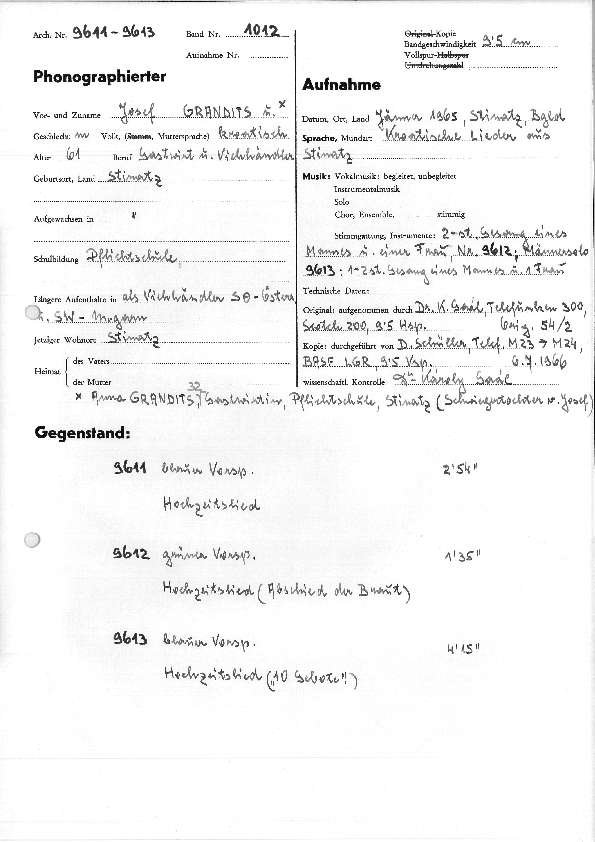 Arch. Nr. 9611 - 9613
Band Nr. 1012
Aufnahme Nr.
Original-Kopie
Bandgeschwindigkeit 9'5 cm
Vollspur-Halbspur
Umdrehungszahl
Phonographierter
Vor- und Zuname Josef GRANDITS u. *
Geschlecht m Volk, (Stamm, Muttersprache) kroatisch
Alter 61 Beruf Gastwirt u. Viehhändler
Geburtsort, Land Stinatz
Aufgewachsen in "
Schulbildung Pflichtschule,
Längere Aufenthalte in als Viehhändler SO-Österr.
u. SW-Ungarn
Jetziger Wohnort Stinatz
Heimat
des Vaters
der Mutter
* Anna GRANDITS, 32, Gastwirtin, Pflichtschule, Stinatz (Schwiegertochter v. Josef)
Aufnahme
Datum, Ort, Land Jänner 1965, Stinatz, Bgld
Sprache, Mundart Kroatische Lieder aus
Stinatz
Musik: Vokalmusik: begleitet, unbegleitet
Instrumentalmusik
Solo
Chor, Ensemble, stimmig
Stimmgattung, Instrumente: 2-st. Gesang eines
Mannes u. einer Frau, Nr. 9612: Männersolo
9613: 1-2st. Gesang eines Mannes u. 1 Frau
Technische Daten:
Original: aufgenommen durch Dr. K. Gaál, Telefunken 300,
Scotch 200, 9'5 Hsp. Orig. 54/2
Kopie: durchgeführt von D. Schüller, Telef. M23 → M24,
BASF LGR, 9'5 Vsp. 6.7.1966
wissenschaftl. Kontrolle Dr. Károly Gaál
Gegenstand:
9611 blauer Vorsp. 2'54"
Hochzeitslied
9612 grüner Vorsp. 1'35"
Hochzeitslied (Abschied der Braut)
9613 blauer Vorsp. 4'15"
Hochzeitslied („10 Gebote")